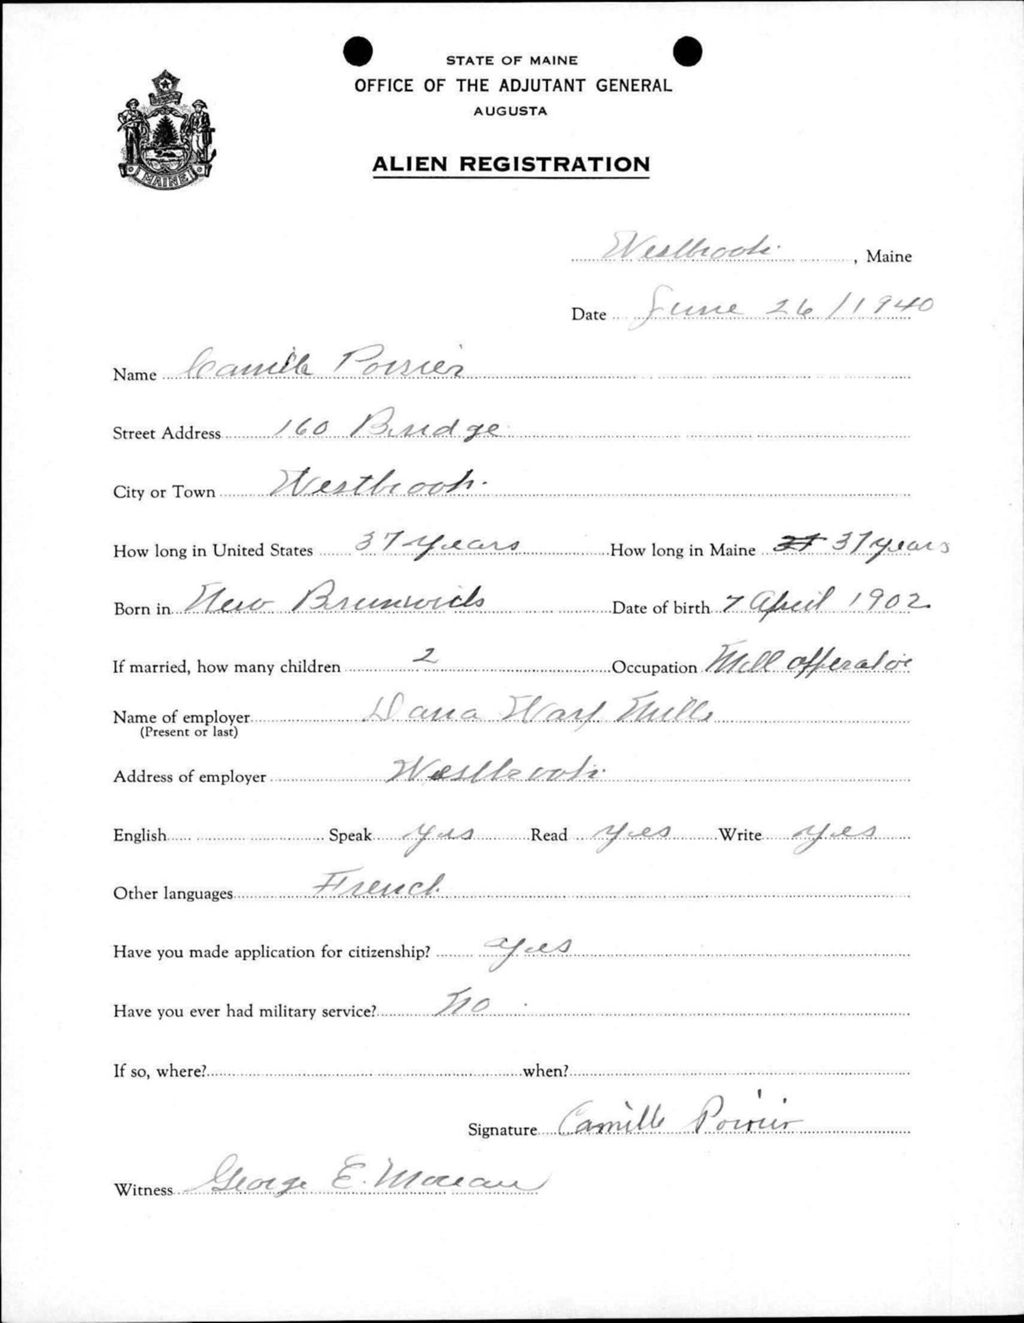 STATE OF MAINE
OFFICE OF THE ADJUTANT GENERAL
AUGUSTA
MAINE
ALIEN REGISTRATION
Westbrook, Maine
Date June 26/1940
Name Camille Poirier
Street Address 160 Bridge
City or Town Westbrook.
How long in United States 37 years How long in Maine 37 years
Born in New Brunswick Date of birth 7 April 1902
If married, how many children 2 Occupation Mill opperator
Name of employer Dana Warp Mills
(Present or last)
Address of employer Westbrook.
English Speak yes Read yes Write yes
Other languages French.
Have you made application for citizenship? yes
Have you ever had military service? no
If so, where? when?
Signature Camille Poirier
Witness George E. Moreau